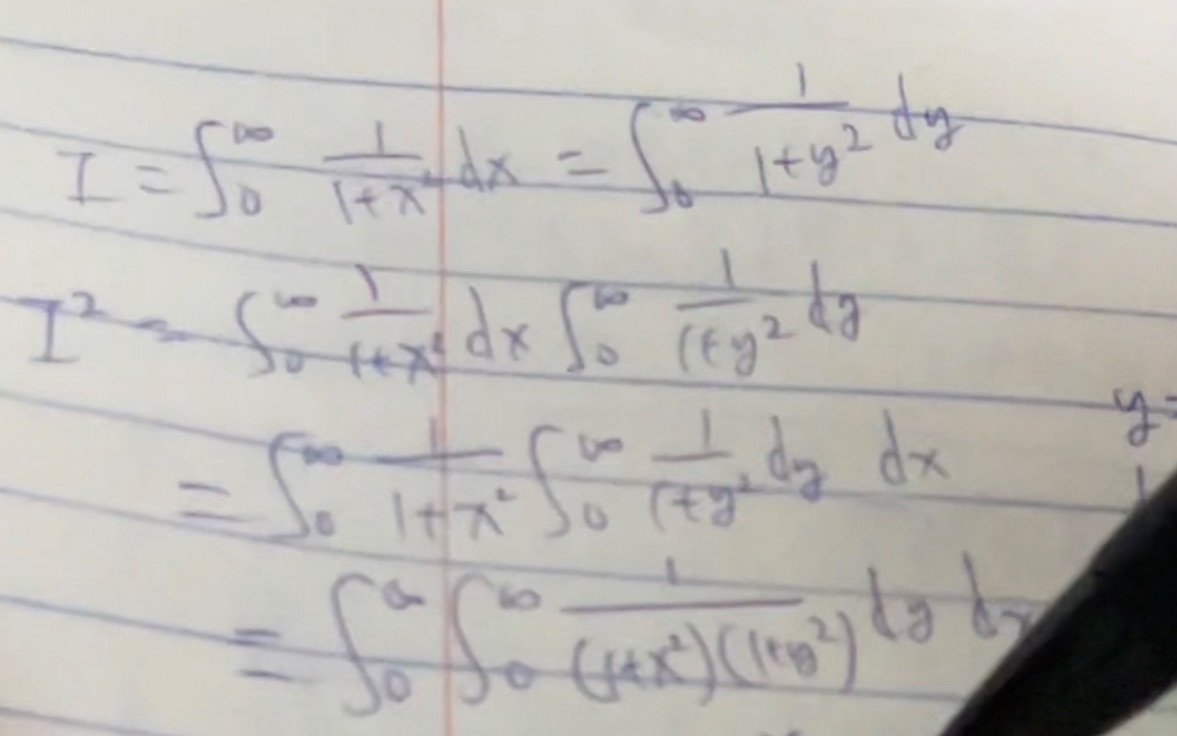 I = ∫₀^∞ 1/(1+x²) dx = ∫₀^∞ 1/(1+y²) dy
I² = ∫₀^∞ 1/(1+x²) dx ∫₀^∞ 1/(1+y²) dy
= ∫₀^∞ 1/(1+x²) ∫₀^∞ 1/(1+y²) dy dx
y=
= ∫₀^∞ ∫₀^∞ 1/((1+x²)(1+y²)) dy dx